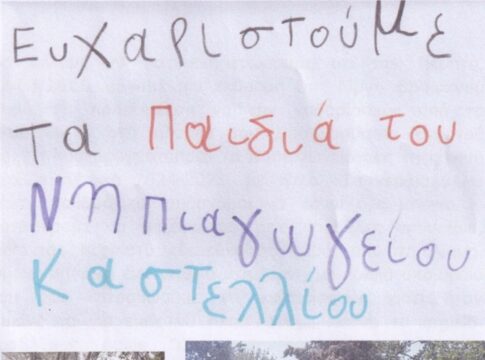 Ευχαριστούμε
Τα Παιδιά του
Νηπιαγωγείου
Καστελλίου